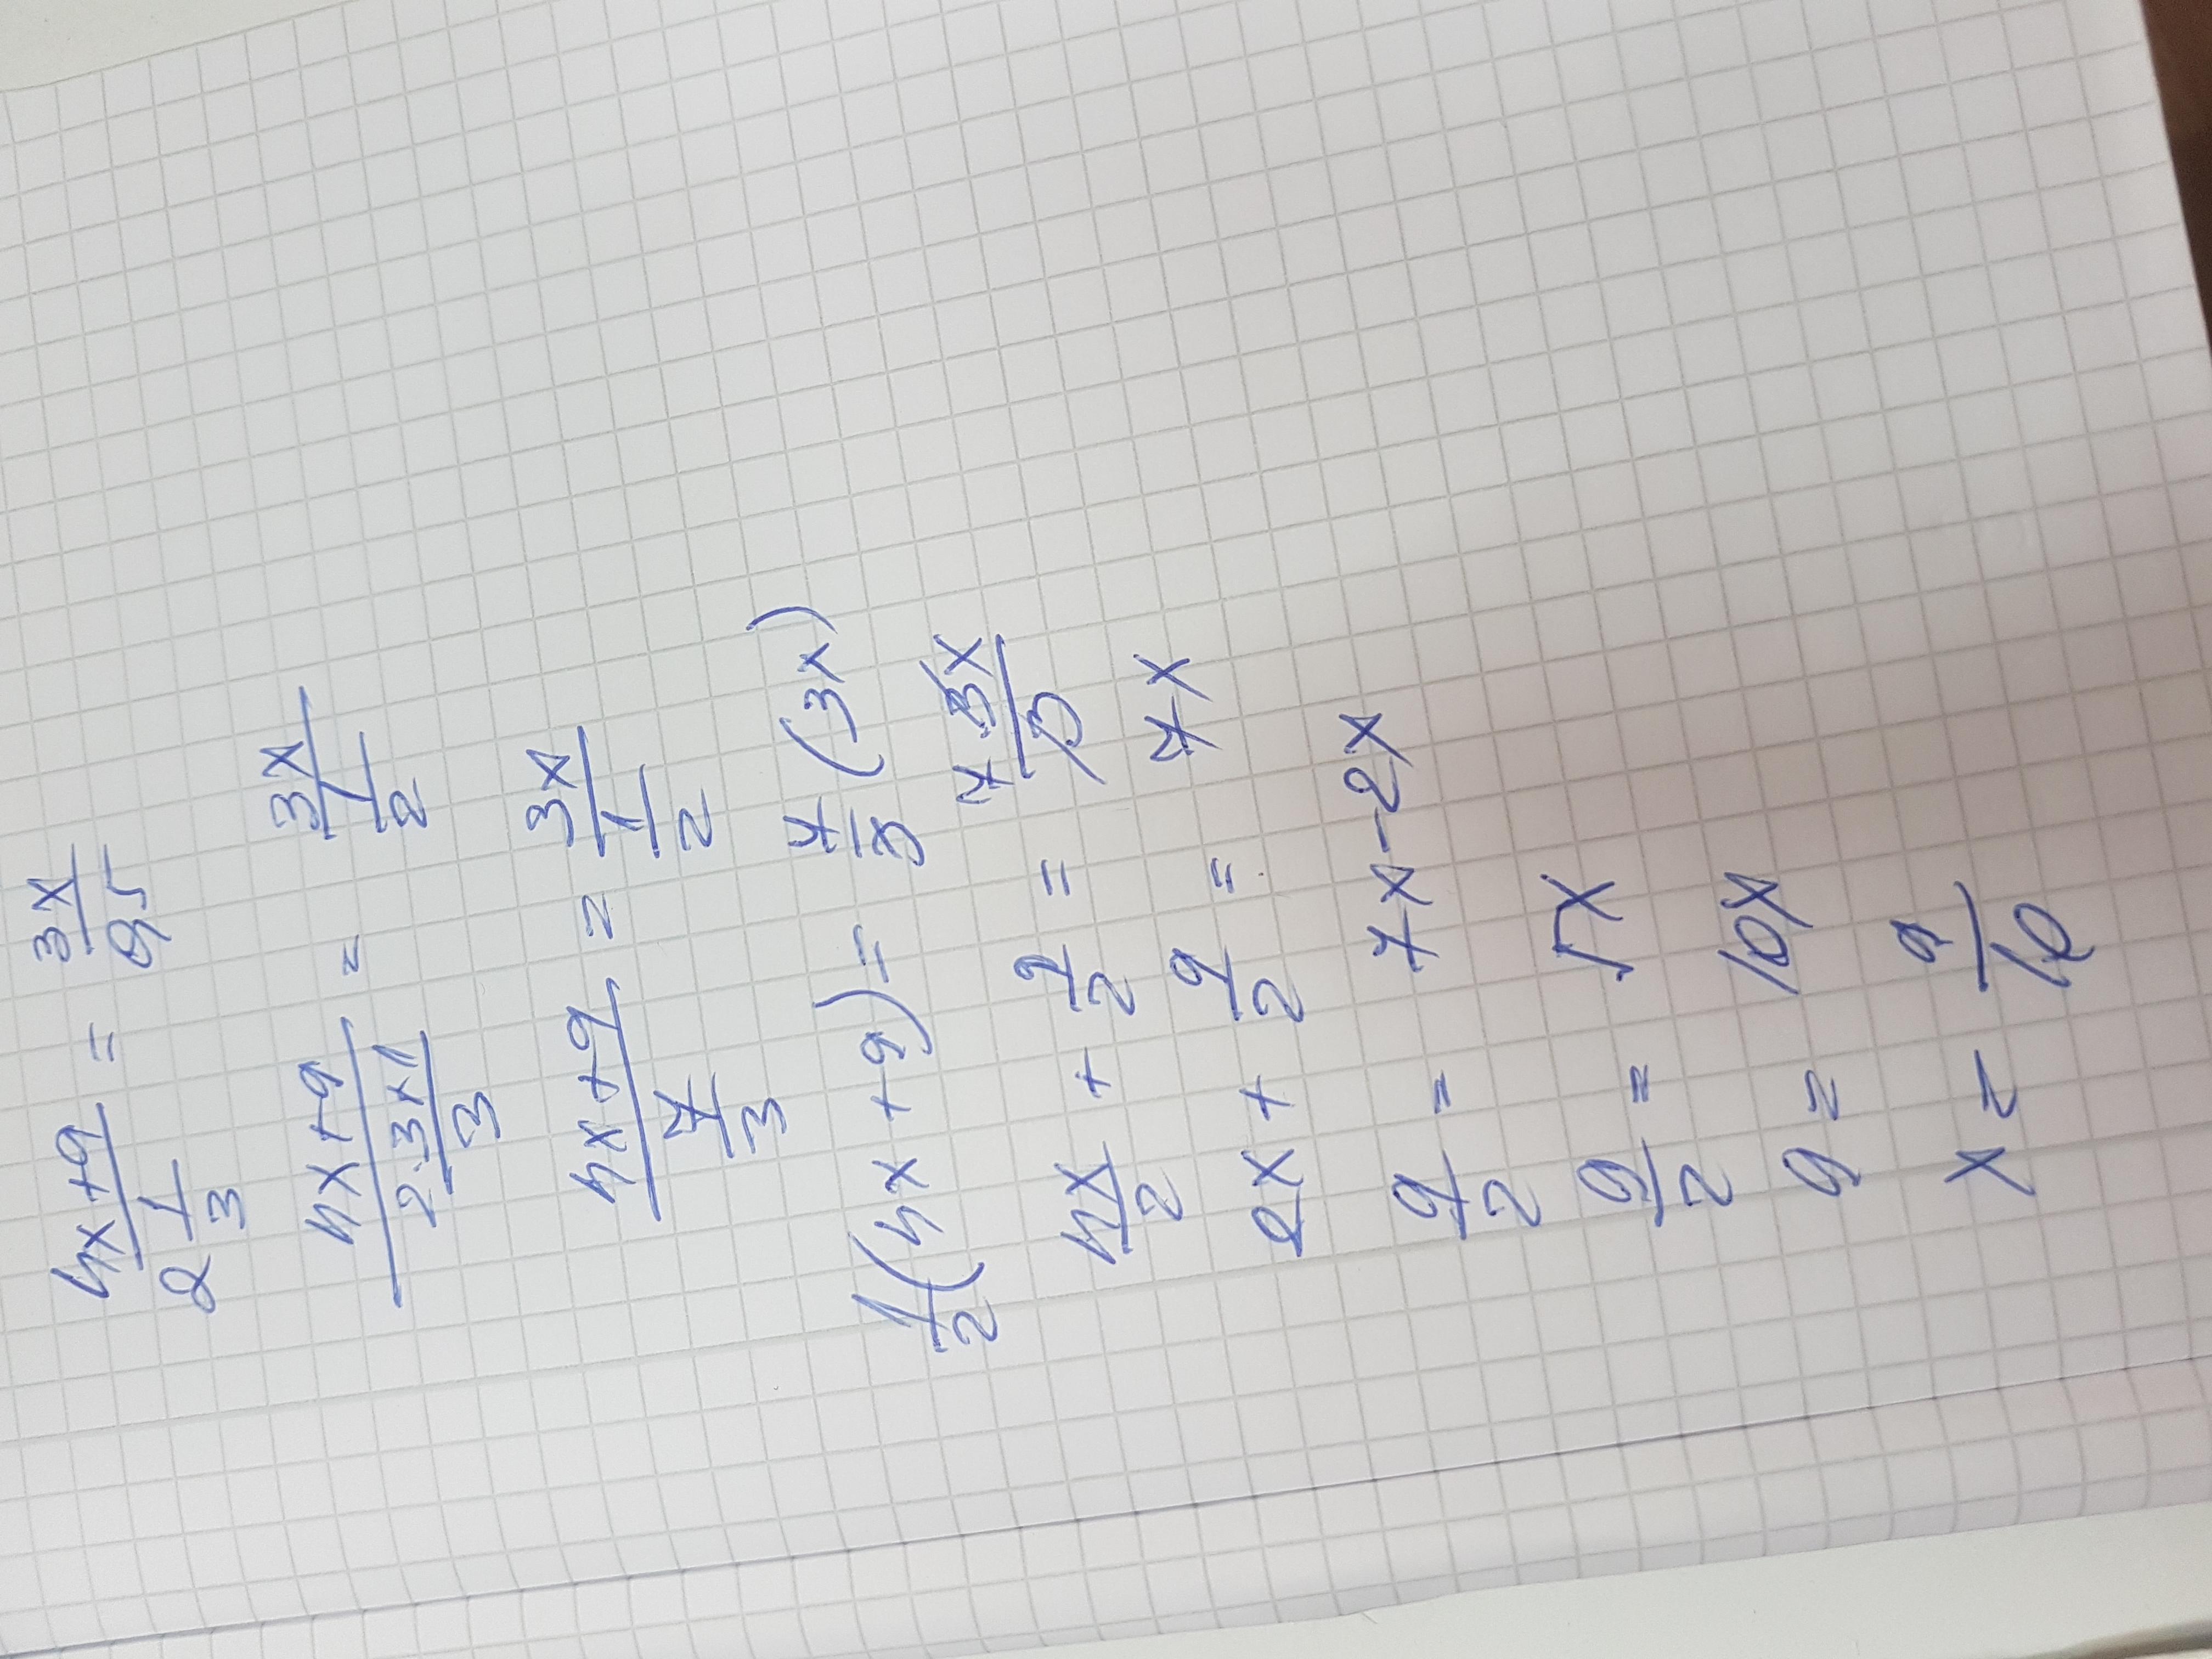 (4x+9)/(2 1/3) = 3x/0,5
(4x+9)/((2·3+1)/3) = 3x/(1/2)
(4x+9)/(7/3) = 3x/(1/2)
1/2(4x+9) = 7/3(3x)
4x/2 + 9/2 = 7·3x/3
2x + 9/2 = 7x
9/2 = 7x-2x
9/2 = 5x
9 = 10x
x = 9/10